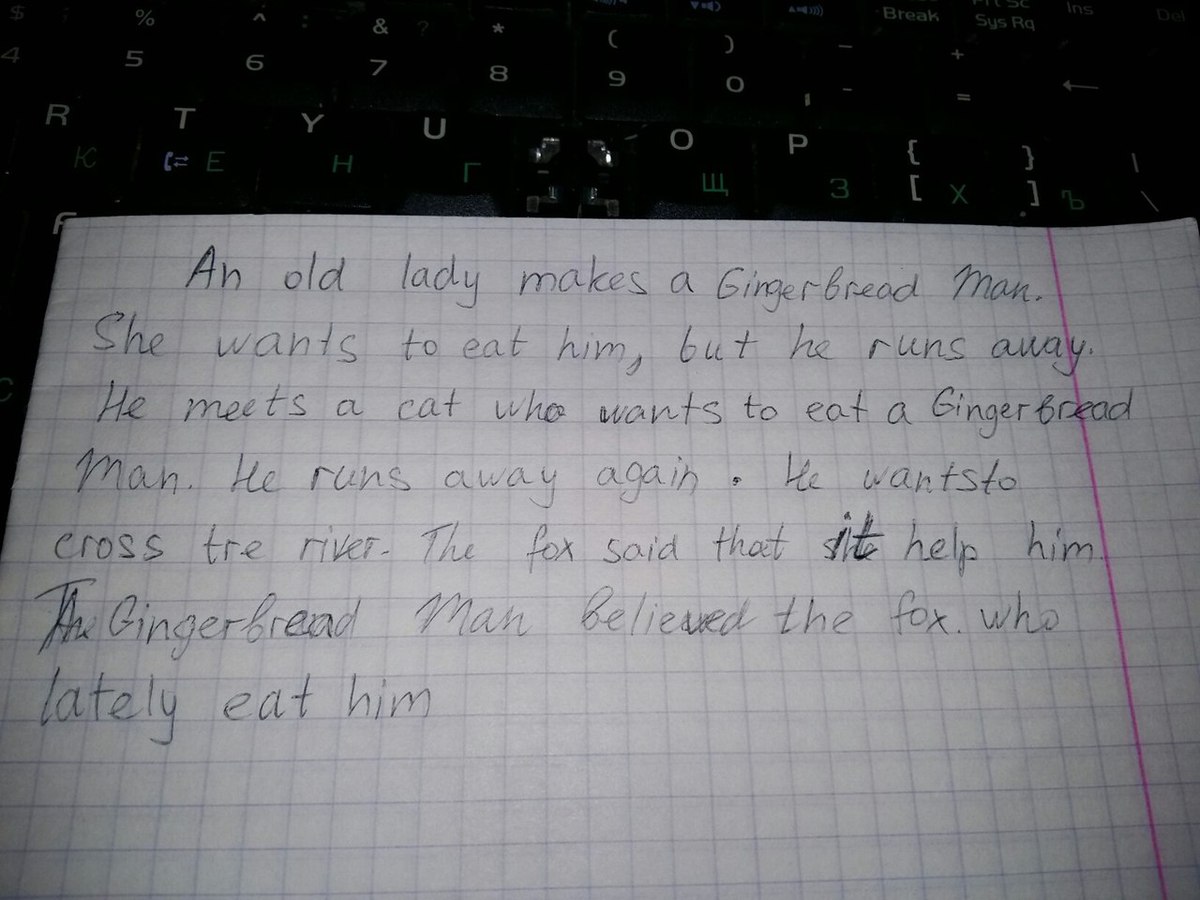 $ % ^ : & ? * ( ) — + Break Prt Sc Sys Rq Ins Del
4 5 6 7 8 9 0 - = ←
R T Y U O P { } |
К Е Н Г Щ З [ Х ] Ъ \
F
An old lady makes a Gingerbread Man.
She wants to eat him, but he runs away.
He meets a cat who wants to eat a Gingerbread
Man. He runs away again. He wantsto
cross tre river. The fox said that it help him.
The Gingerbread Man believed the fox. who
lately eat him